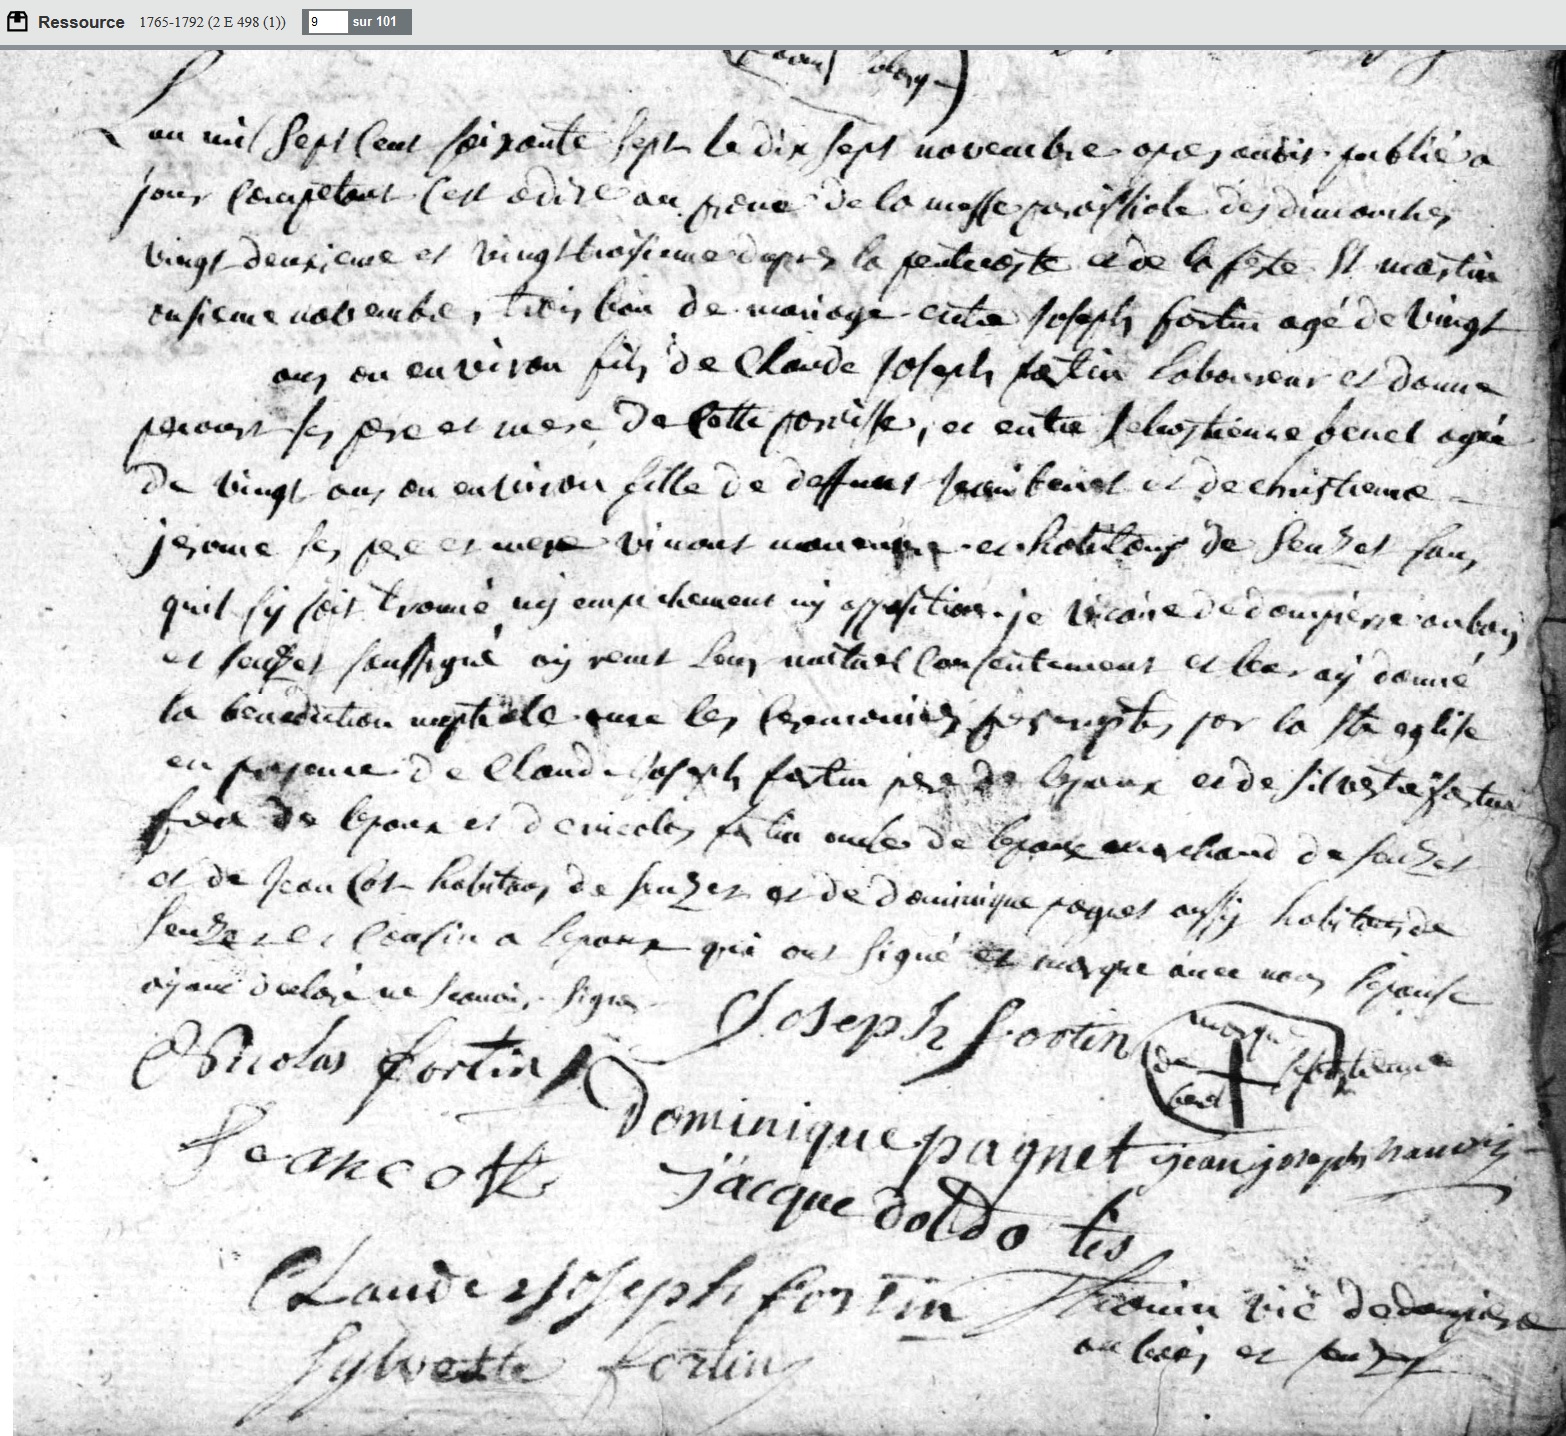 Ressource 1765-1792 (2 E 498 (1)) 9 sur 101
Lan mil sept cent soixante sept le dix sept novembre apres avoir publié a
jour competant cest adire au prone de la messe paroissiale des dimanches
vingt deuxieme et vingt troisieme dapres la pentecoste et de la feste St martin
onsieme novembre, trois ban de mariage entre Joseph fortin agé de vingt
ans ou environ fils de Claude Joseph fortin laboureur et d anne
ses pere et mere de cette paroisse, et entre sebastienne benel agée
de vingt ans ou environ fille de deffunt Jean benel et de christienne
jerome ses pere et mere vivant et habitans de seuzet sans
quil sy soit trouvé ny empechement ny opposition je vicaire de dompierre au bois
et seuzet soussigné ay recut leur mutuel consentement et leur ay donné
la benediction nuptiale avec les ceremonies prescriptes par la Ste eglise
en presence de Claude Joseph fortin pere de lepoux et de silvestre fortin
frere de lepoux et de nicolas fortin oncle de lepoux marchand de seuzet
et de Jean Cot habitans de seuzet et de dominique paquet aussy habitans de
seuzet et cousin a lepoux qui ont signé et marque avec nous lepouse
ayant declaré ne scavoir signer
Joseph fortin
marque
de sebastienne
benel
Nicolas fortin
dominique pagnet jean joseph
Jean Cot
jacque doldo tis
CLaude Joseph fortin
vic de dompierre
au bois et seuzet
Sylvestre fortin